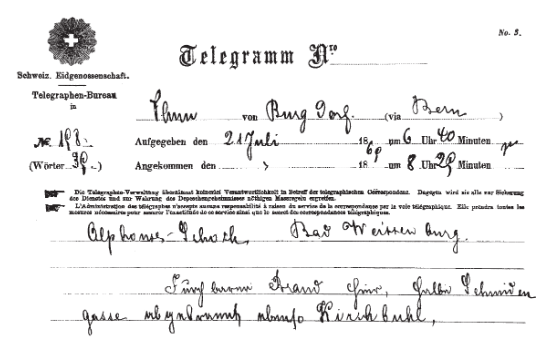 No. 5.
Telegramm Nro
Schweiz. Eidgenossenschaft.
Telegraphen-Bureau
in
Thun von Burgdorf. (via Bern)
No. 198. Aufgegeben den 21 Juli 1865 um 6 Uhr 40 Minuten
(Wörter 39) Angekommen den " 18 um 8 Uhr 29 Minuten
Die Telegraphen-Verwaltung übernimmt keinerlei Verantwortlichkeit in Betreff der telegraphischen Correspondenz. Dagegen wird sie alle zur Sicherung
des Dienstes und zur Wahrung des Depeschengeheimnisses nöthigen Massregeln ergreifen.
L'Administration des télégraphes n'accepte aucune responsabilité à raison du service de la correspondance par la voie télégraphique. Elle prendra toutes les
mesures nécessaires pour assurer l'exactitude de ce service ainsi que le secret des correspondances télégraphiques.
Alphonse Schoch, Bad Weissenburg.
Furchtbarer Brand hier, halbe Schmiden
gasse abgebrannt ebenso Kirchbühl,